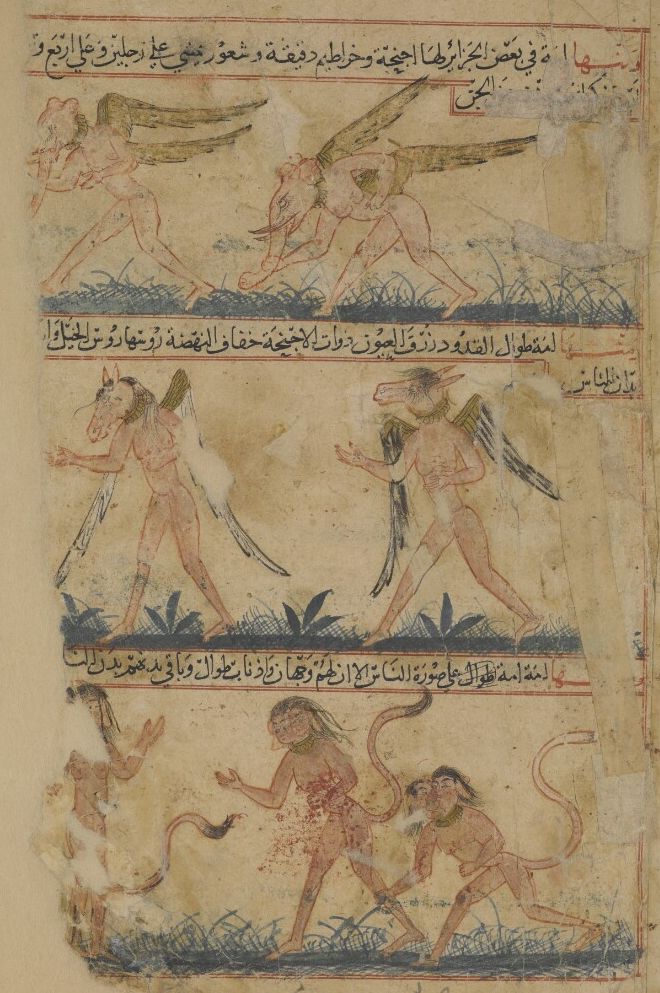 ومنها امة في بعض الجزائر لها اجنحة وخراطيم دقيقة وشعور تمشي على رجلين وعلى اربع و
الجن
ومنها امة طوال القدود زرق العيون ذوات الاجنحة خفاف النهضة روسها روس الخيل وا
بدان الناس
ومنها امة طوال على صورة الناس الا ان لهم وجهان واذناب طوال وباقي بدنهم بدن النا